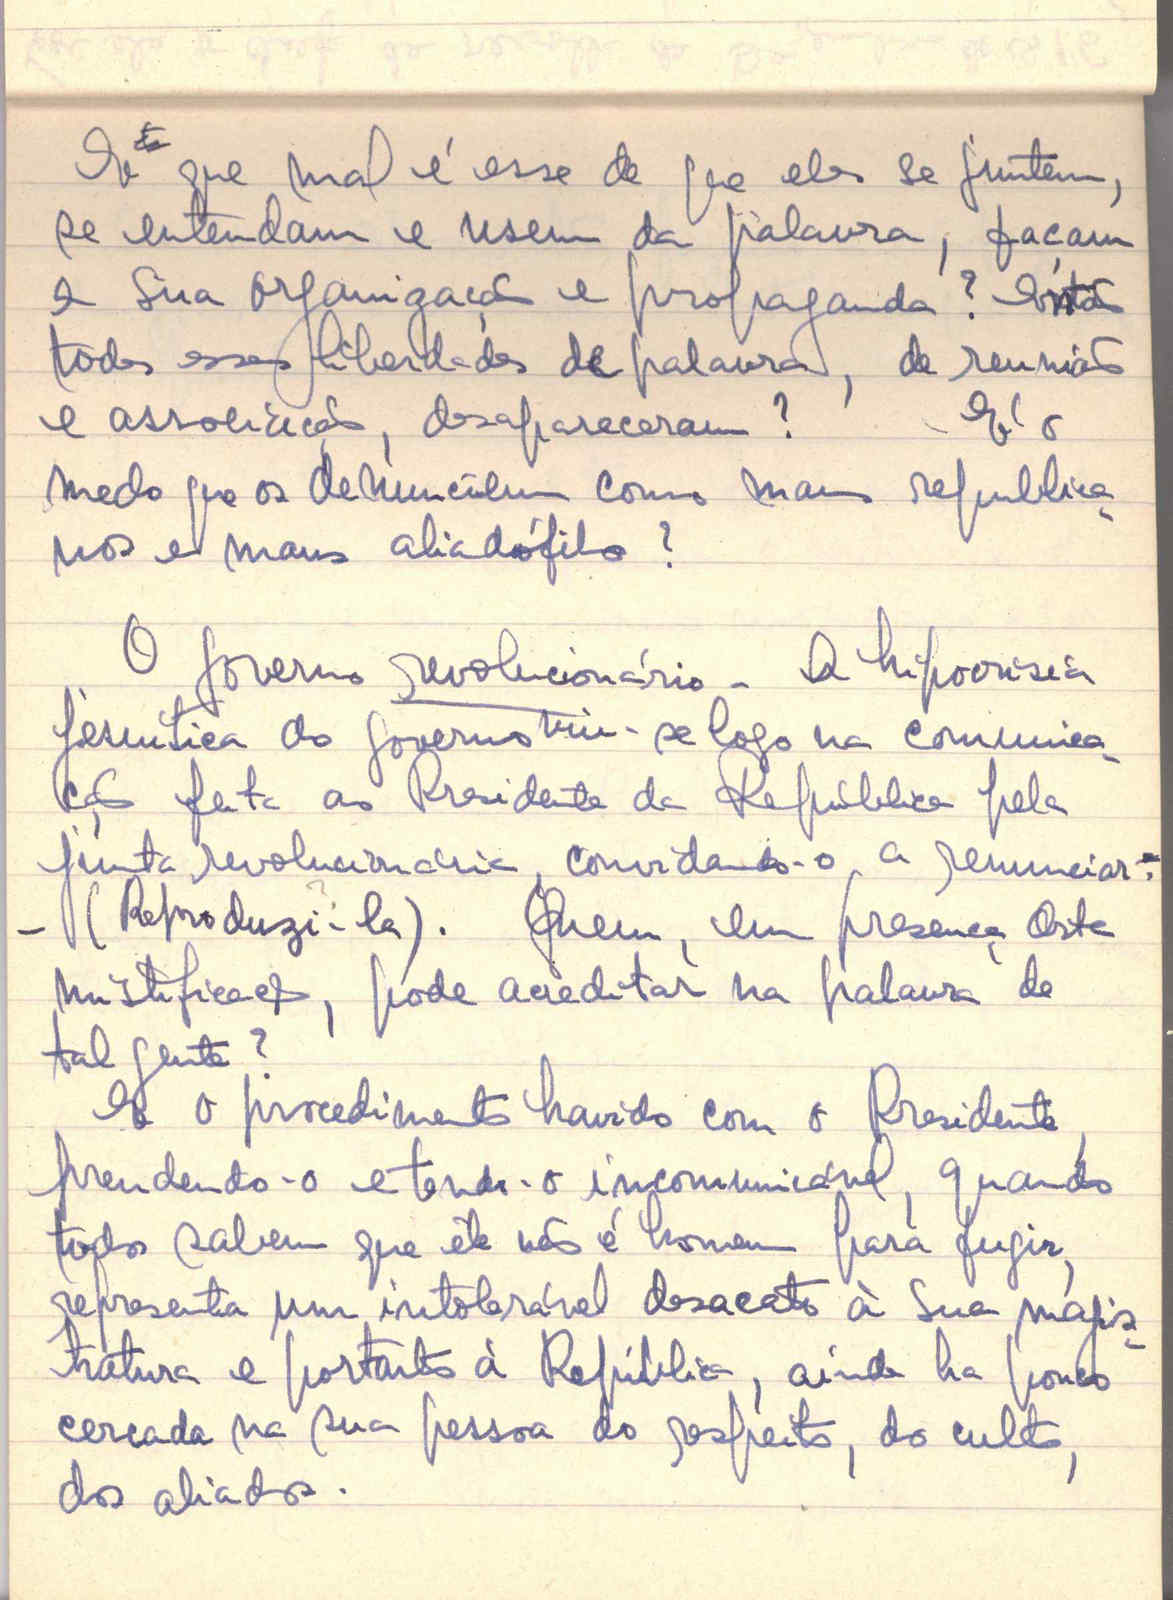 E que mal é esse de que eles se juntem,
se entendam e usem da palavra, façam
a sua organização e propaganda? Então
todas essas liberdades de palavra, de reunião
e associação, desapareceram? É o
medo que os denunciem como maus republica-
nos e maus aliadófilos?
O governo revolucionário - A hipocrisia
jesuítica do governo viu-se logo na comunica-
ção feita ao Presidente da República pela
junta revolucionária, convidando-o a renunciar:
- (Reproduzi-la). Quem, em presença desta
mistificação, pode acreditar na palavra de
tal gente?
E o procedimento havido com o Presidente,
prendendo-o e tendo-o incomunicável, quando
todos sabem que ele não é homem para fugir,
representa um intolerável desacato à sua magis-
tratura e portanto à República, ainda ha pouco
cercada na sua pessoa do respeito, do culto,
dos aliados.